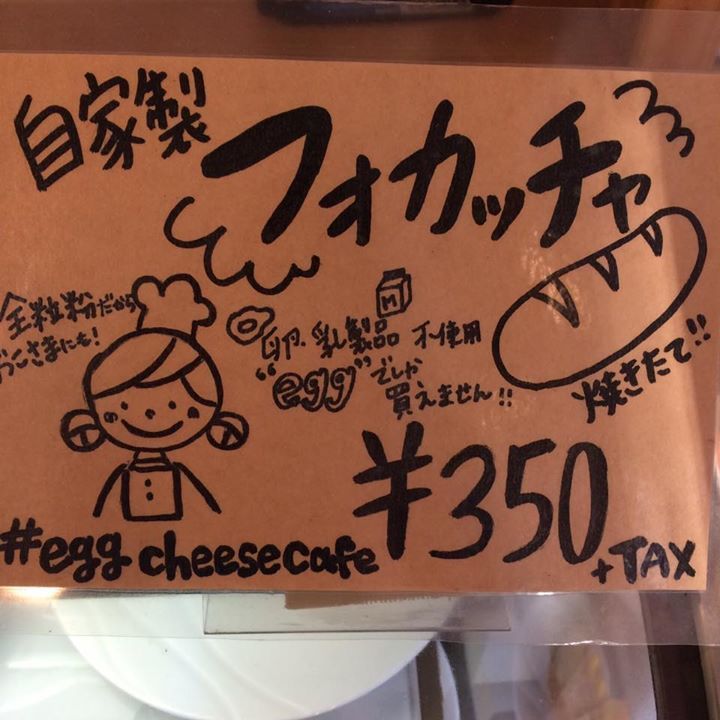 自家製
フォカッチャ
全粒粉だから
おこさまにも!
M
卵・乳製品 不使用
"egg" でしか
買えません!!
焼きたて!!
¥350
+TAX
#egg cheesecafe